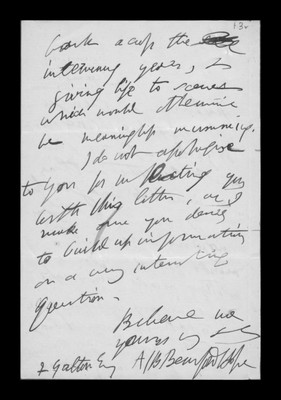 13v
back across the
intervening years, &
giving life to scenes
which would otherwise
be meaningless mummeries.
I do not apologise
to you for in
with this letter, as I
sure you desire
to build up information
on a very interesting
question.
Believe me
yours
A J B Beresford Hope